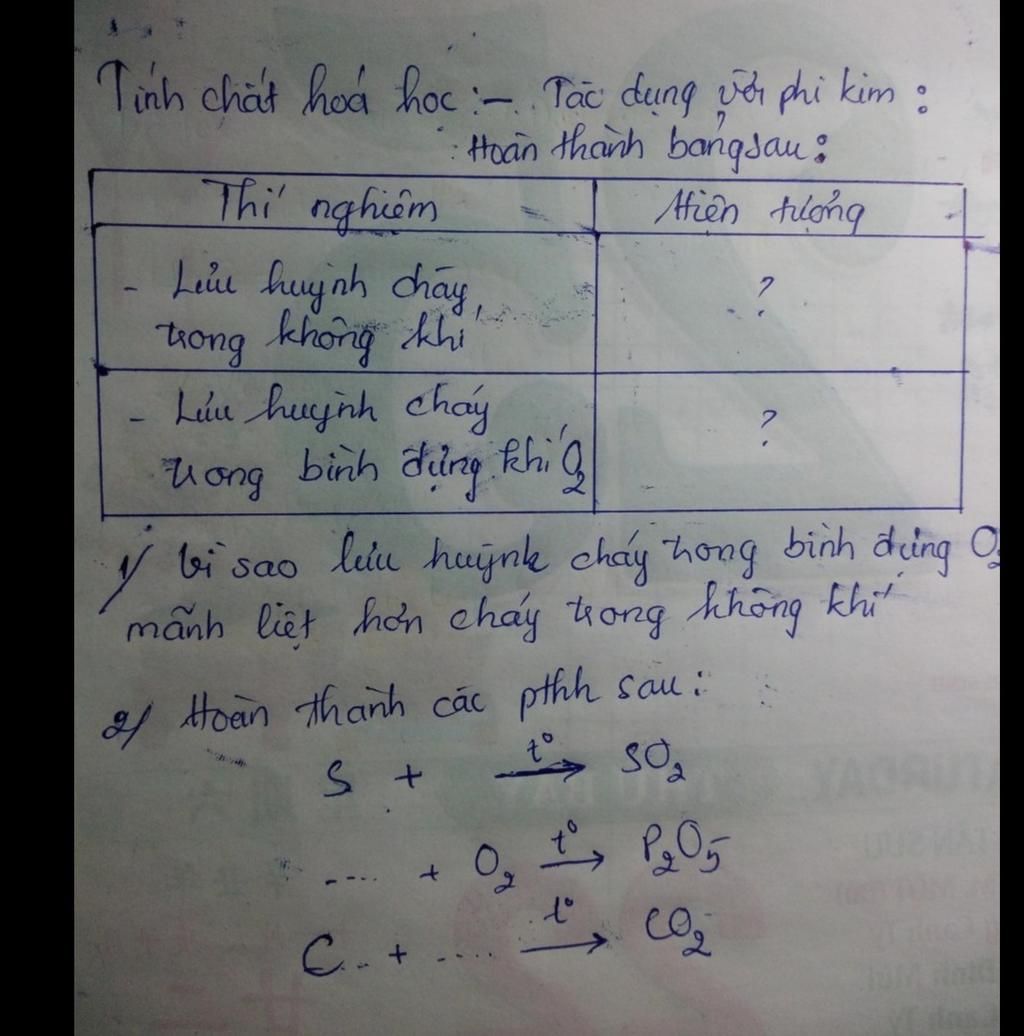 Tính chất hoá học :- Tác dụng với phi kim :
Hoàn thành bảng sau :
Thí nghiệm
Hiện tượng
- Lưu huỳnh cháy
trong không khí
?
- Lưu huỳnh cháy
trong bình đựng khí O₂
?
1/ Vì sao lưu huỳnh cháy trong bình đựng O₂
mãnh liệt hơn cháy trong không khí
2/ Hoàn thành các pthh sau :
S + t° → SO₂
.... + O₂ t° → P₂O₅
C + .... t° → CO₂